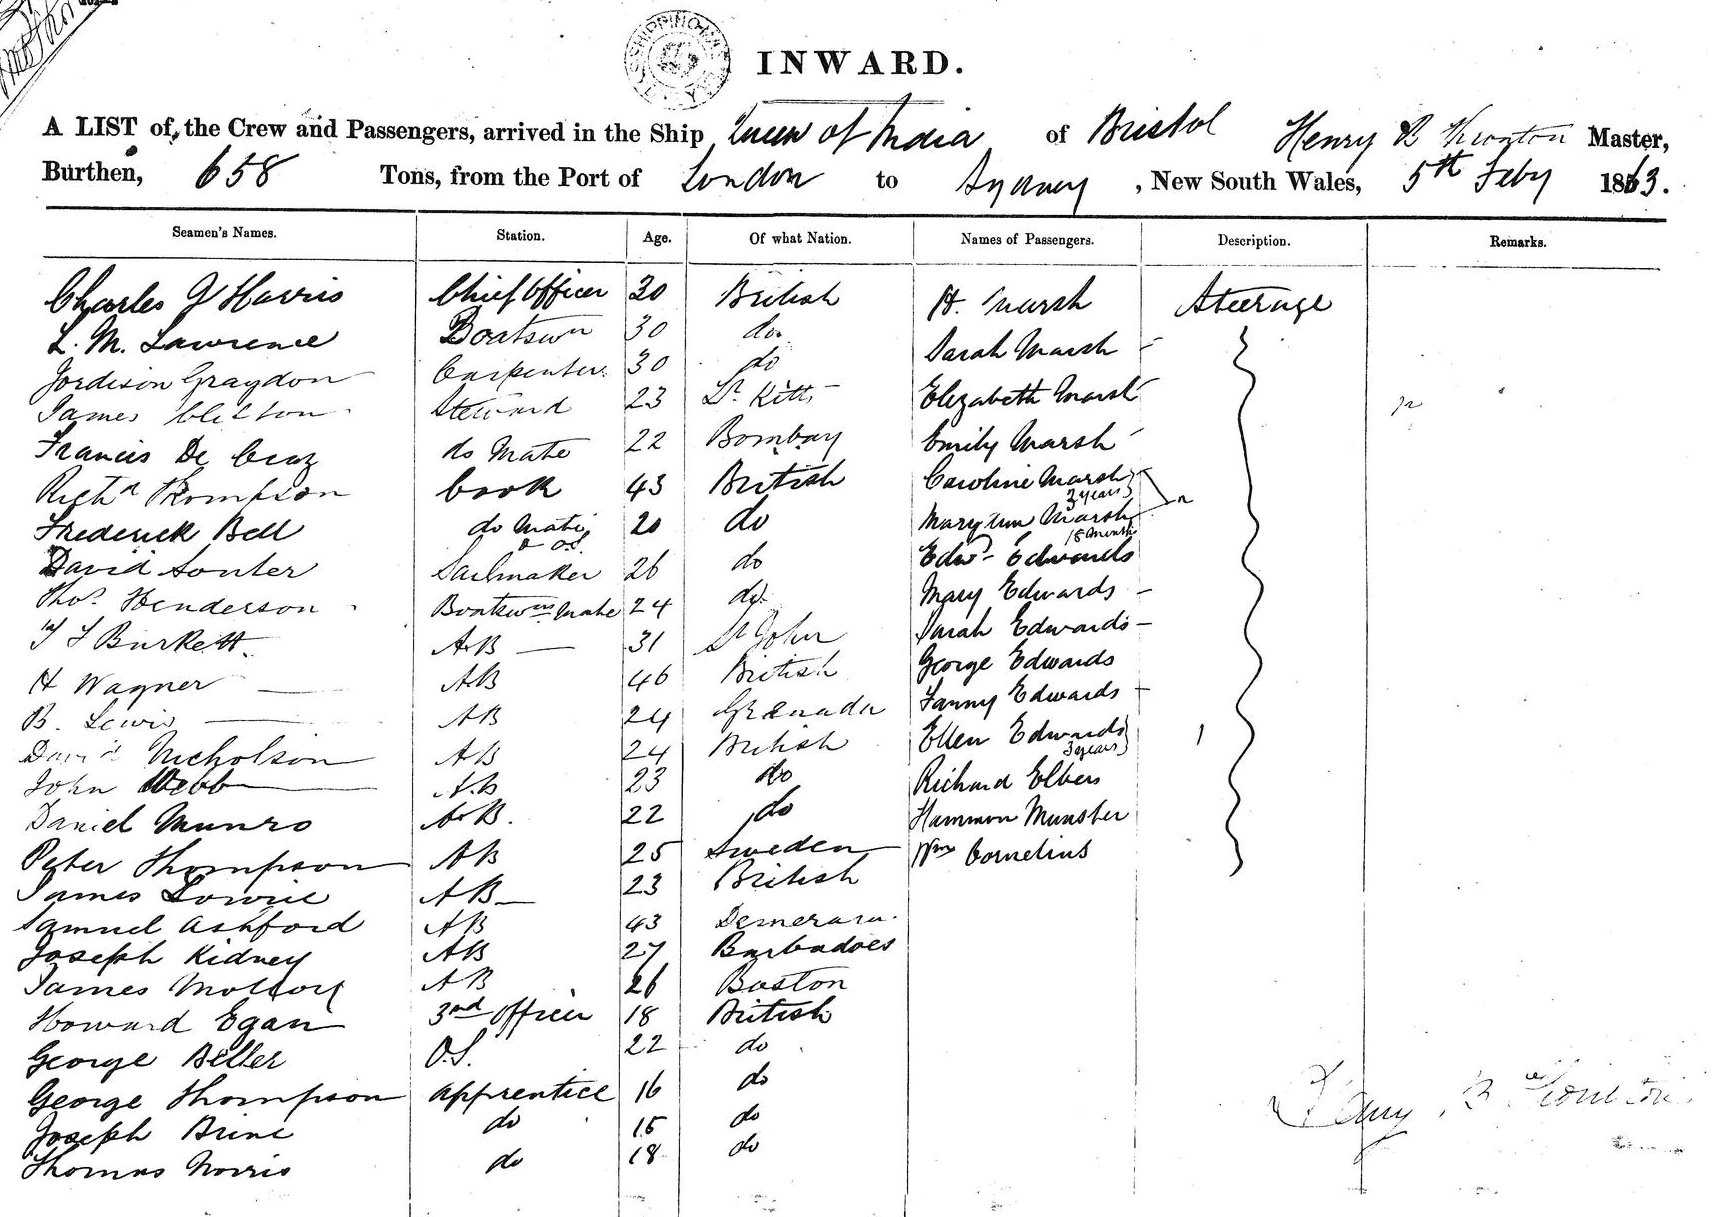 INWARD.
A LIST of the Crew and Passengers, arrived in the Ship Queen of India of Bristol Henry B Master,
Burthen, 658 Tons, from the Port of London to Sydney, New South Wales, 5th Feby 1863.
Seamen's Names. Station. Age. Of what Nation. Names of Passengers. Description. Remarks.
Charles J Harris Chief Officer 30 British H. Marsh Steerage
L. M. Lawrence Boatswn 30 do. Sarah Marsh
Jordison Graydon Carpenter 30 do Elizabeth Marsh
James Steward 23 St Kitts Emily Marsh
Francis De Cruz do Mate 22 Bombay Caroline Marsh 3 years
Richd Thompson Cook 43 British Mary Ann Marsh 18 Months
Frederick Bell do Mate & O.S. 20 do Edwd Edwards
David Souter Sailmaker 26 do Mary Edwards
Thos Henderson Boatswns Mate 24 do. Sarah Edwards
Burkett AB 31 St John George Edwards
H Wagner AB 46 British Fanny Edwards
B. Lewis AB 24 Grenada Ellen Edwards 3 years
David Nicholson AB 24 British Richard Elbers
John Webb AB 23 do Hammon Munster
Daniel Munro AB. 22 do Wm Cornelius
Peter Thompson AB 25 Sweden
James Lowrie AB 23 British
Samuel Ashford AB 43 Demerara
Joseph Kidney AB 27 Barbadoes
James AB 26 Boston
Howard Egan 3rd Officer 18 British
George Beller O.S. 22 do
George Thompson apprentice 16 do
Joseph Brine do 15 do
Thomas Norris do 18 do
Henry B